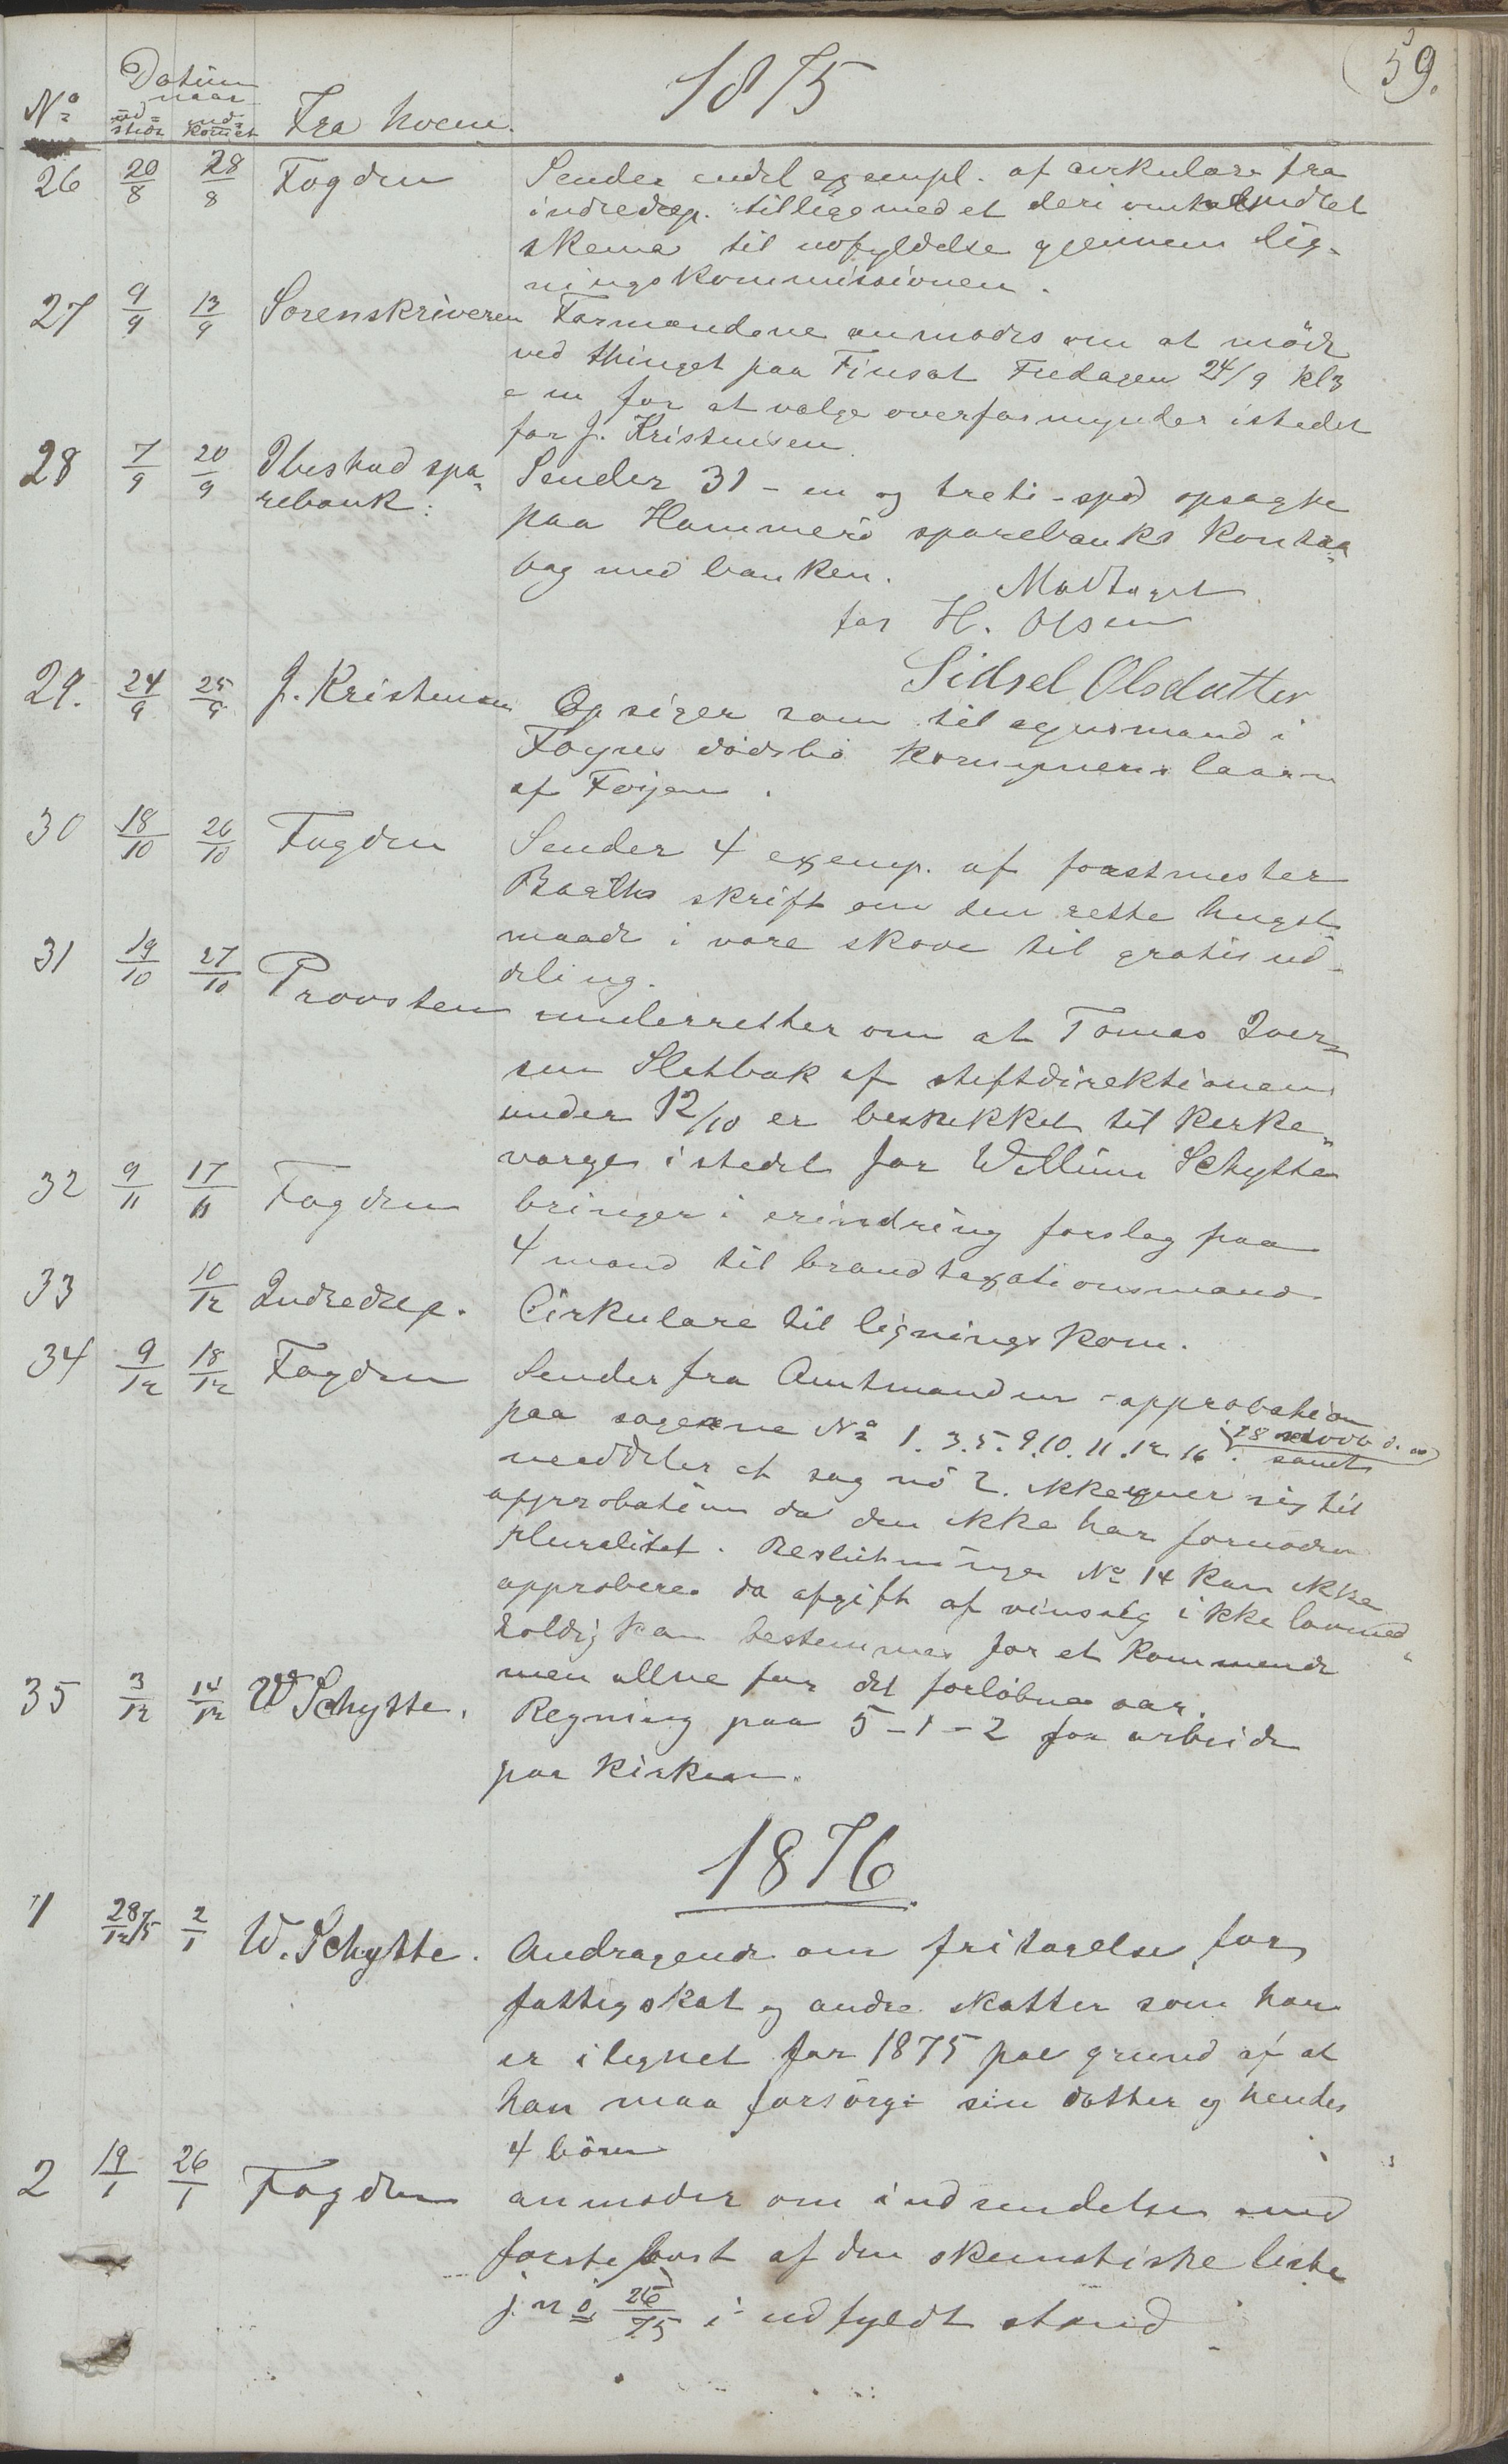 59.
1875
No Datum naar ud- stedt ind- komet Fra hvem.
26 20/8 28/8 Fogden Sender endel exempl. af cirkulære fra
indredep. tilligemed et deri omhandlet
skema til udfyldelse gjennem lig-
ningskommissionen.
27 9/9 13/9 Sorenskriveren Formændene anmodes om at möde
ved thinget paa Finsæt Fredagen 24/9 kl 3
e m for at vælge overformynder istedet
for J. Kristensen.
28 7/9 20/9 Ibestad spa-
rebank: Sender 31 - en og treti - spd opsagte
paa Hammerö sparebanks kontra-
bog med banken. Modtaget
for H. Olsen
Sidsel Olsdatter
29. 24/9 25/9 J. Kristensen Opsiger som tilsynsmand i
Foynes dödsbo kornmagasin laan
af Foyen.
30 18/10 26/10 Fogden Sender 4 exemp. af forstmester
Barths skrift om den rette hugst-
maade i vore skove til gratis ud-
deling.
31 19/10 27/10 Provsten underretter om at Tomas Iver-
sen Sletbak af stiftdirektionen
under 12/10 er beskikket til kirke-
værge istedet for Willum Schytte
32 9/11 17/11 Fogden bringer i erindring forslag paa
4 mænd til brandtaxationsmænd
33 10/12 Indredep. Cirkulære til ligningskom.
34 9/12 18/12 Fogden Sender fra Amtmanden approbation
paa sagerne No 1. 3. 5. 9. 10. 11. 12. 16. samt
meddeler at sag nö 2. ikke egner sig til
approbation da den ikke har fornöden
pluralitet. Beslutningen No 14 kan ikke
approberes da afgift af vinsalg ikke lovmed-
holdig kan bestemmes for et kommende
men allene for det forlöbne aar.
35 3/12 14/12 W Schytte. Regning paa 5 - 1 - 2 for arbeide
paa kirken.
1876
1 28/12 75 2/1 W. Schytte. Andragende om fritagelse for
fattigskat og andre skatter som han
er ilignet for 1875 paa grund af at
han maa forsörge sin datter og hendes
4 börn
2 19/1 26/1 Fogden anmoder om indsendelse med
förste post af den skematiske liste
j. nö 26/75 i udfyldt stand